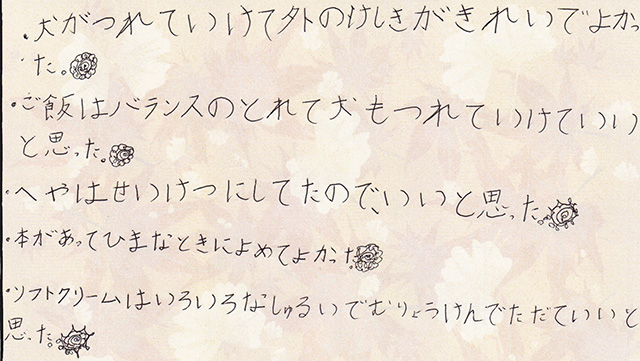 ・犬がつれていけて外のけしきがきれいでよかっ
た。
・ご飯はバランスのとれて犬もつれていけていい
と思った。
・へやはせいけつにしてたので、いいと思った。
・本があってひまなときによめてよかった。
・ソフトクリームはいろいろなしゅるいでむりょうけんでただでいいと
思った。